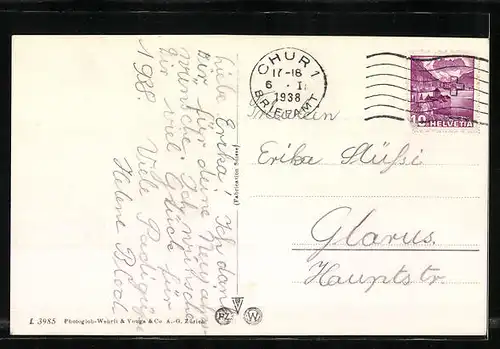 Liebe Erika! Ich danke
Dir für deine Neujahrs-
wünsche. Ich wünsche
Dir viel Glück für
1938. Viele
Helene
(Fabrication Suisse)
CHUR 1
17-18
6 . I.
1938
BRIEFAMT
10 HELVETIA
Erika Stüssi
Glarus.
Hauptstr.
L 3985 Photoglob-Wehrli & Vouga & Co. A.-G. Zürich
PZ W